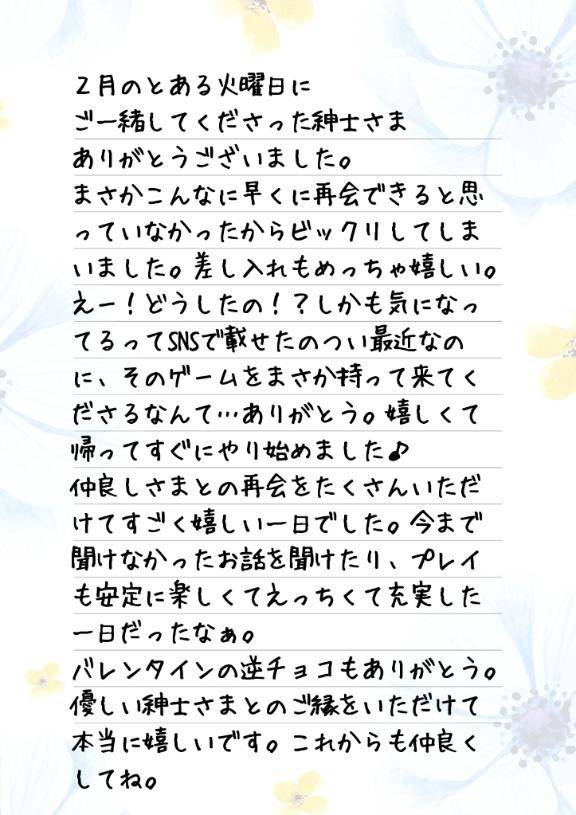 ２月のとある火曜日に
ご一緒してくださった紳士さま
ありがとうございました。
まさかこんなに早くに再会できると思
っていなかったからビックリしてしま
いました。差し入れもめっちゃ嬉しい。
えー！どうしたの！？しかも気になっ
てるってSNSで載せたのつい最近なの
に、そのゲームをまさか持って来てく
ださるなんて…ありがとう。嬉しくて
帰ってすぐにやり始めました♪
仲良しさまとの再会をたくさんいただ
けてすごく嬉しい一日でした。今まで
聞けなかったお話を聞けたり、プレイ
も安定に楽しくてえっちくて充実した
一日だったなぁ。
バレンタインの逆チョコもありがとう。
優しい紳士さまとのご縁をいただけて
本当に嬉しいです。これからも仲良く
してね。